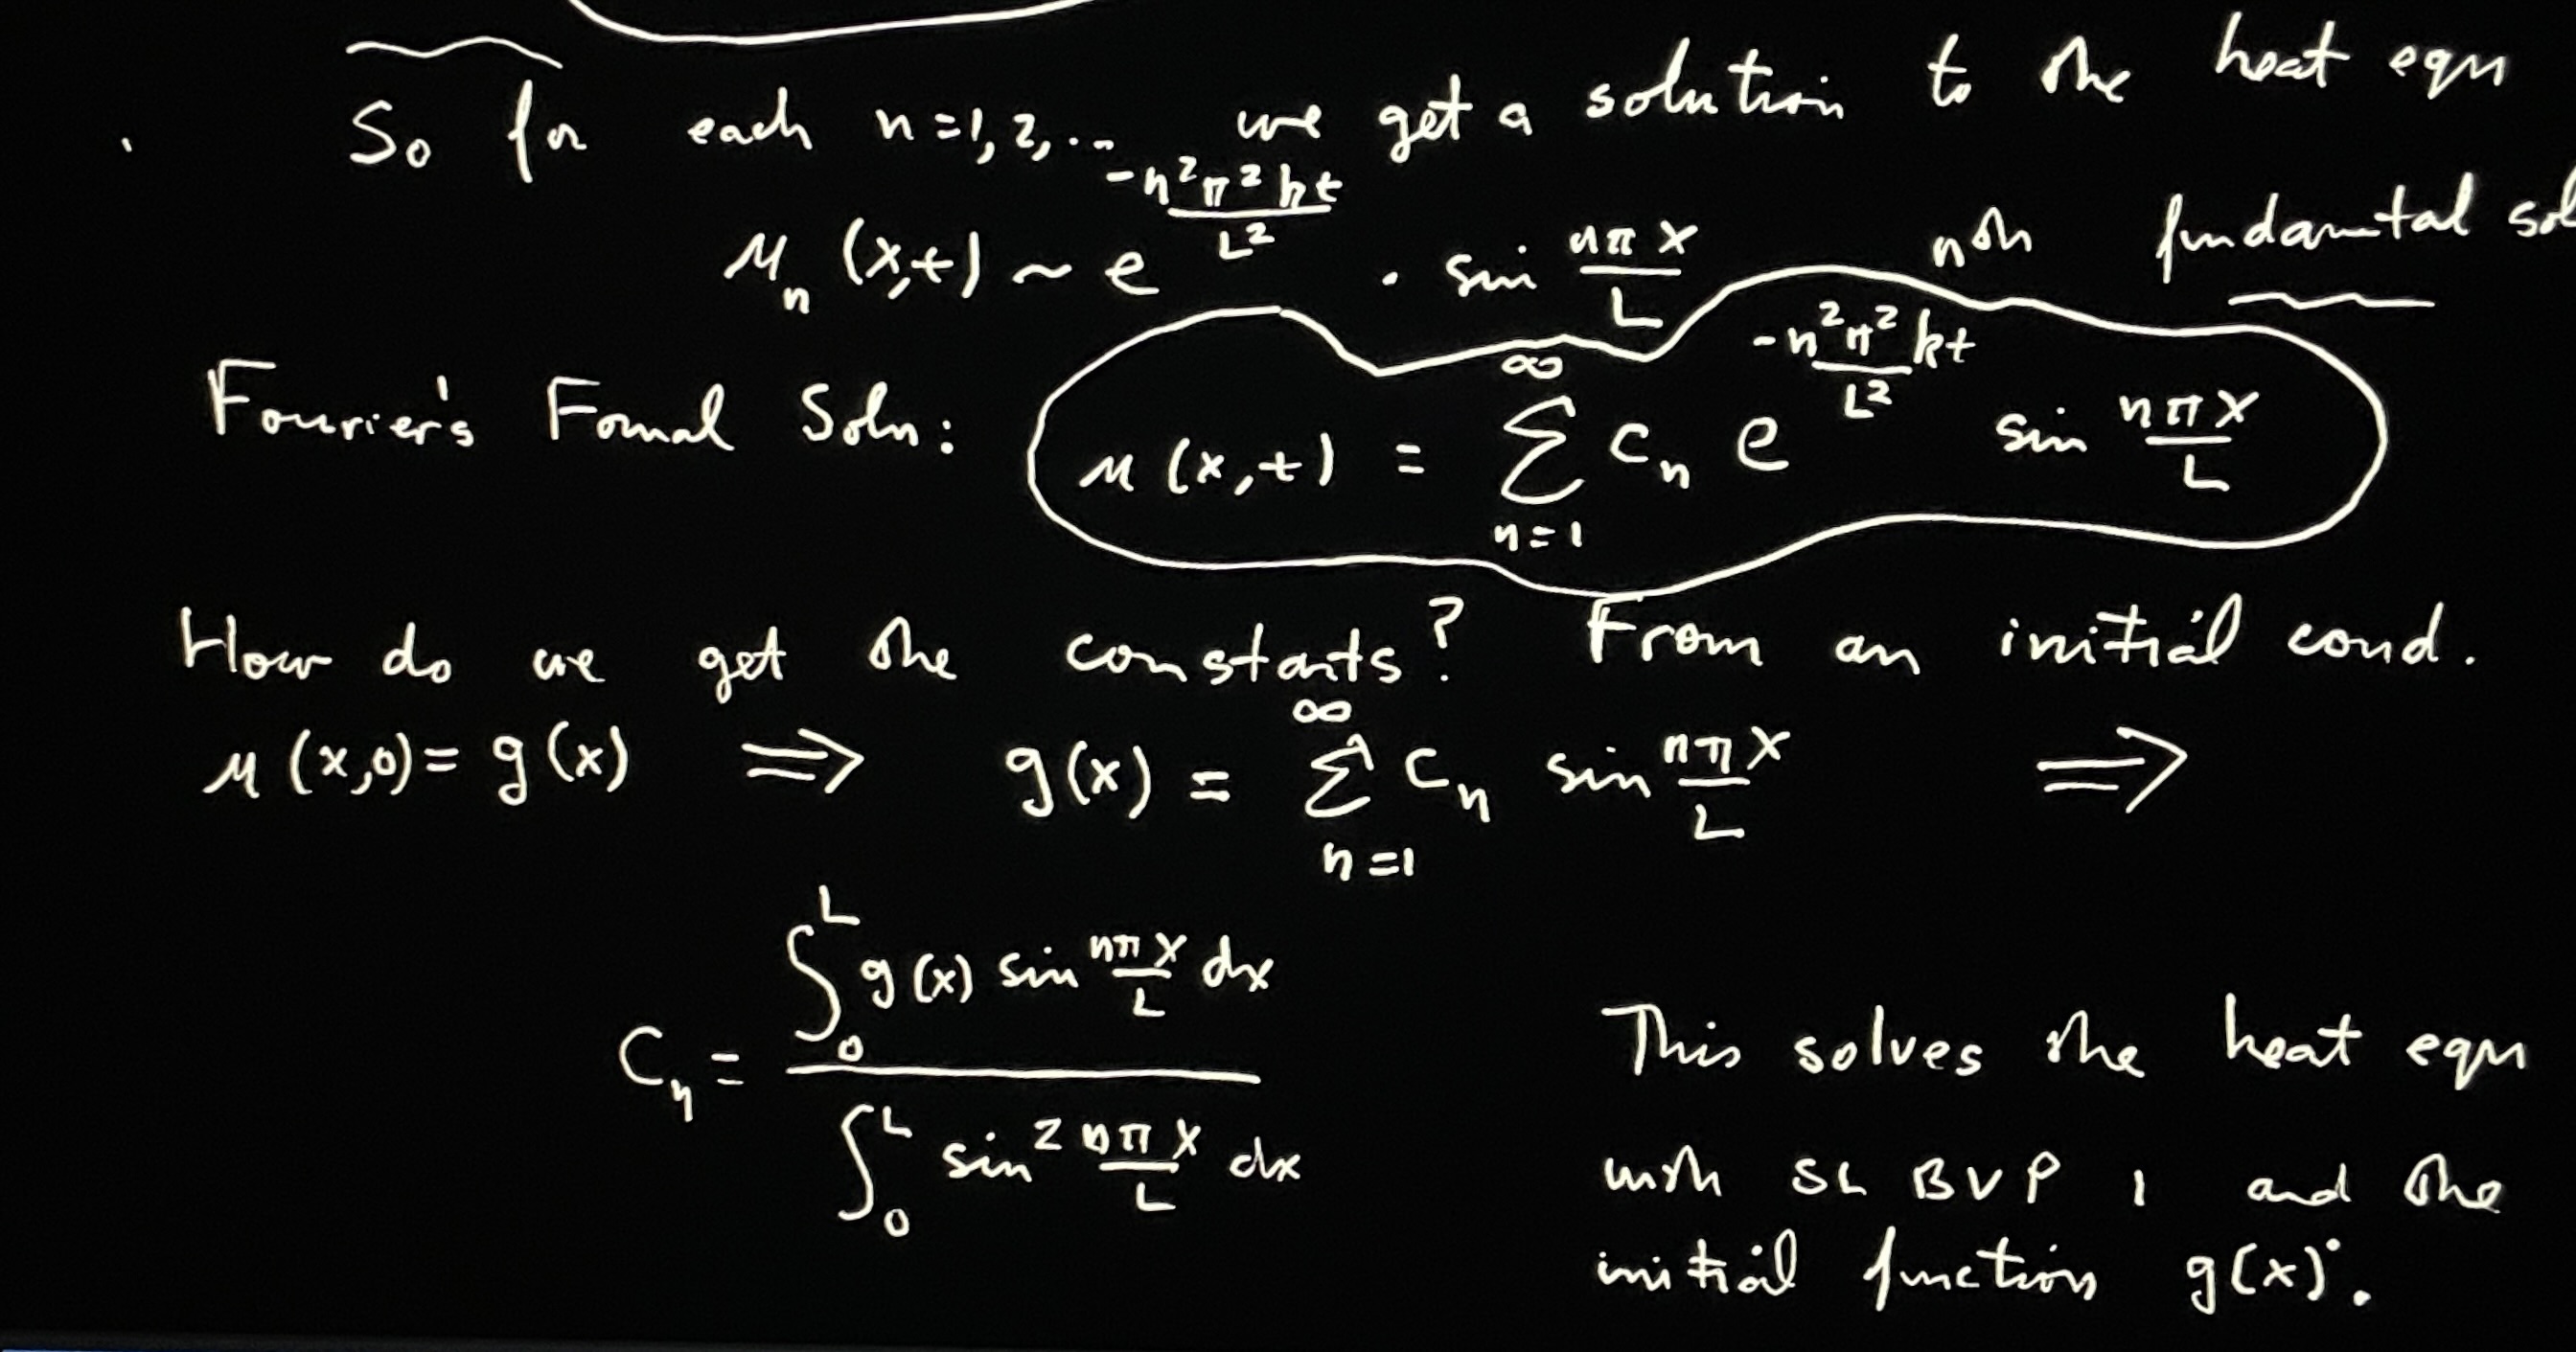 So for each n=1,2,... we get a solution to the heat eqn
u_n (x,t) ~ e^{-n²π²kt/L²} · sin nπx/L nth fundamental sol
Fourier's Fomal Soln: u(x,t) = ∑_{n=1}^{∞} c_n e^{-n²π²kt/L²} sin nπx/L
How do we get the constants? From an initial cond.
u(x,0) = g(x) ⟹ g(x) = ∑_{n=1}^{∞} c_n sin nπx/L ⟹
c_n = ∫_0^L g(x) sin nπx/L dx / ∫_0^L sin² nπx/L dx
This solves the heat eqn
with SL BVP 1 and the
initial function g(x).